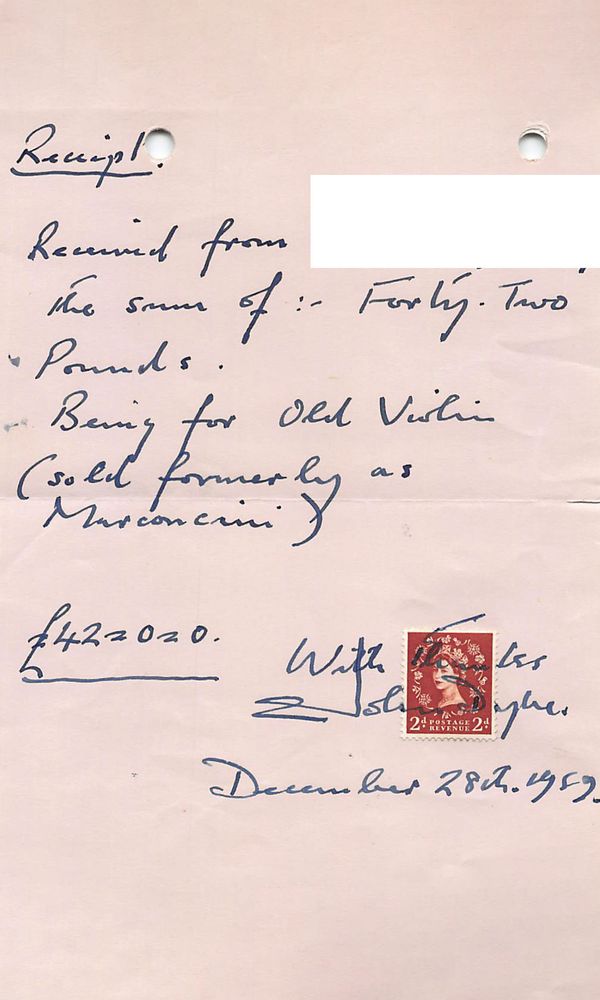 Receipt.
Received from
The sum of :- Forty-Two
Pounds.
Being for Old Violin
(sold formerly as
Marconcini)
£42=0=0.
With Thanks
John
2d POSTAGE REVENUE 2d
December 28th. 1959.